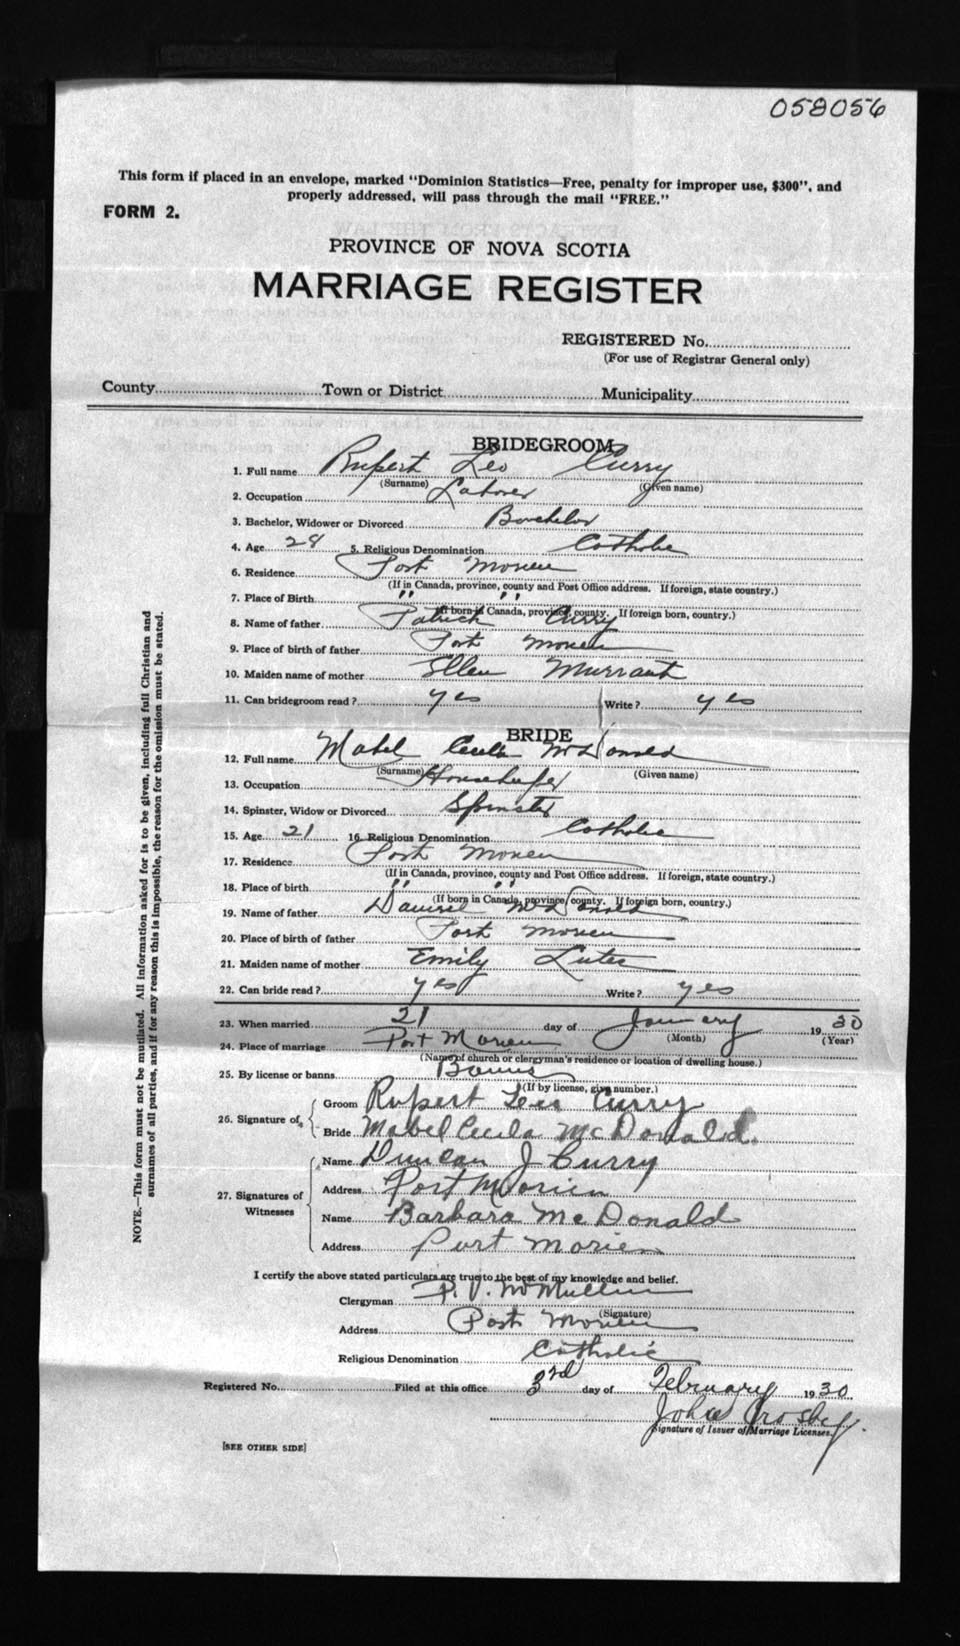 058056
This form if placed in an envelope, marked "Dominion Statistics—Free, penalty for improper use, $300", and
properly addressed, will pass through the mail "FREE."
FORM 2.
PROVINCE OF NOVA SCOTIA
MARRIAGE REGISTER
REGISTERED No.
(For use of Registrar General only)
County Town or District Municipality
BRIDEGROOM
1. Full name Rupert Leo Curry
(Surname) (Given name)
2. Occupation Laborer
3. Bachelor, Widower or Divorced Bachelor
4. Age 28 5. Religious Denomination Catholic
6. Residence Port Morien
(If in Canada, province, county and Post Office address. If foreign, state country.)
7. Place of Birth " "
(If born in Canada, province, county. If foreign born, country.)
8. Name of father Patrick Curry
9. Place of birth of father Port Morien
10. Maiden name of mother Ellen Murrant
11. Can bridegroom read? yes Write? yes
BRIDE
12. Full name Mabel Cecila McDonald
(Surname) (Given name)
13. Occupation Housekeeper
14. Spinster, Widow or Divorced Spinster
15. Age 21 16. Religious Denomination Catholic
17. Residence Port Morien
(If in Canada, province, county and Post Office address. If foreign, state country.)
18. Place of birth " "
(If born in Canada, province, county. If foreign born, country.)
19. Name of father Daniel McDonald
20. Place of birth of father Port Morien
21. Maiden name of mother Emily
22. Can bride read? yes Write? yes
23. When married 21 day of January 1930
(Month) (Year)
24. Place of marriage Port Morien
(Name of church or clergyman's residence or location of dwelling house.)
25. By license or banns Banns
(If by license, give number.)
26. Signature of Groom Rupert Leo Curry
Bride Mabel Cecila McDonald.
27. Signatures of Witnesses
Name Duncan J Curry
Address Port Morien
Name Barbara McDonald
Address Port Morien
I certify the above stated particulars are true to the best of my knowledge and belief.
Clergyman McMullin
(Signature)
Address Port Morien
Religious Denomination Catholic
Registered No. Filed at this office 3rd day of February 1930
John Crosby
Signature of Issuer of Marriage Licenses.
[SEE OTHER SIDE]
NOTE.—This form must not be mutilated. All information asked for is to be given, including full Christian and
surnames of all parties, and if for any reason this is impossible, the reason for the omission must be stated.